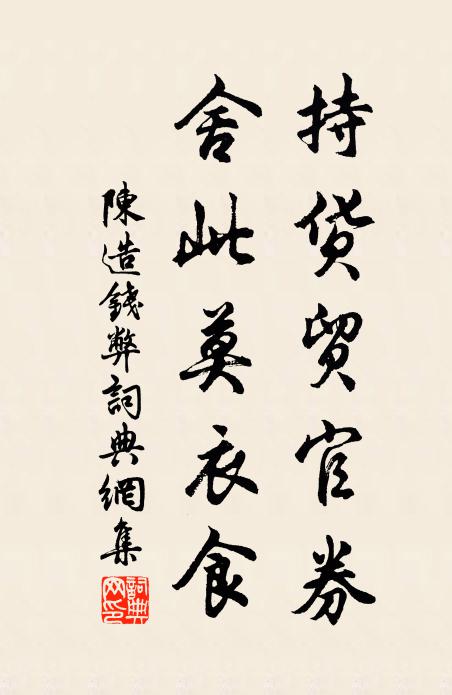 持貨貿官券
舍此莫衣食
陳造錢弊詞典網集
詞典網印